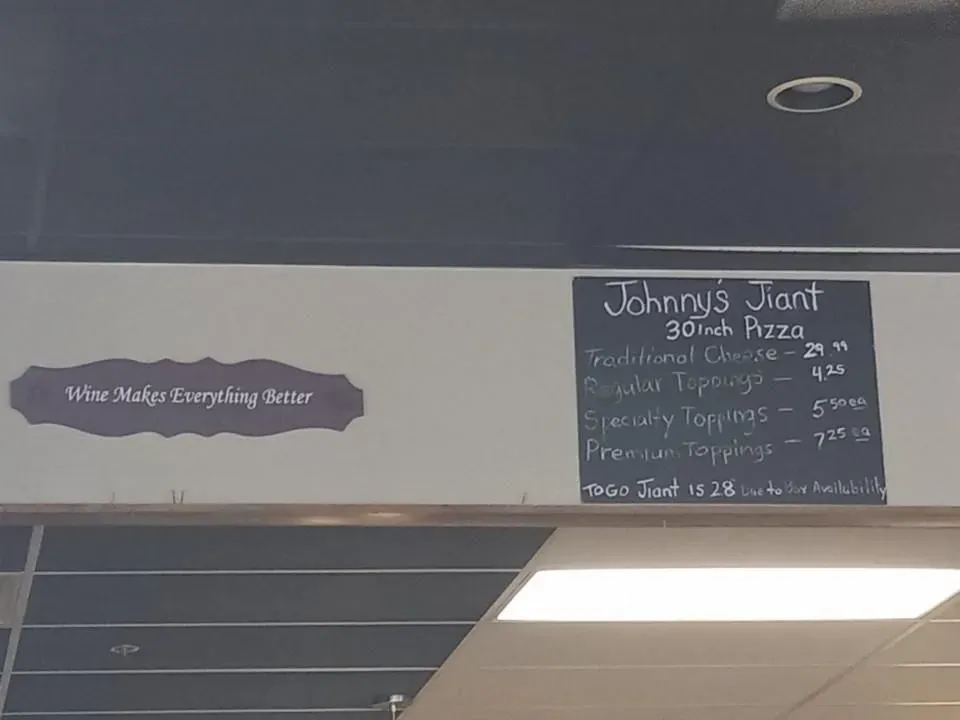 Wine Makes Everything Better
Johnny's Jiant
30inch Pizza
Traditional Cheese - 29.99
Regular Toppings - 4.25
Specialty Toppings - 5 50 ea
Premium Toppings - 7 25 ea
TOGO Jiant is 28" Due to Box Availability